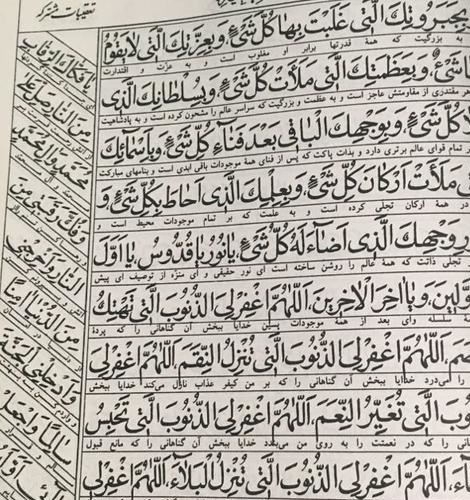 تعقیبات مشترکه
بجبروتک التی غلبت بها کل شیء و بعزتک التی لا یقوم
به بزرگیت که همهٔ قدرتها برابر او مغلوب است و به عزت و اقتدارت
شیء و بعظمتک التی ملأت کل شیء و بسلطانک الذی
مقتدری از مقاومتش عاجز است و به عظمت و بزرگیت که سراسر عالم را مشحون کرده است و به پادشاهیت
کل شیء و بوجهک الباقی بعد فناء کل شیء و باسمائک
تمام قوای عالم برتری دارد و بذات پاکت که پس از فنای همهٔ موجودات باقی ابدی است و بنامهای مبارکت
ملأت ارکان کل شیء و بعلمک الذی احاط بکل شیء و
در همهٔ ارکان تجلی کرده است و به علمت که بر تمام موجودات محیط است و
وجهک الذی اضاء له کل شیء یا نور یا قدوس یا اول
تجلی ذاتت که همهٔ عالم را روشن ساخته است ای نور حقیقی و ای منزه از توصیف ای پیش
لین و یا آخر الآخرین اللهم اغفر لی الذنوب التی تهتک
سلسله وای بعد از همهٔ موجودات پسین خدایا ببخش آن گناهانی را که پردهٔ
اللهم اغفر لی الذنوب التی تنزل النقم اللهم اغفر لی
را می‌درد خدایا ببخش آن گناهانی را که بر من کیفر عذاب نازل می‌کند خدایا ببخش
وب التی تغیر النعم اللهم اغفر لی الذنوب التی تحبس
را که در نعمتت را به روی من می‌بندد خدایا ببخش آن گناهانی را که مانع قبول
اللهم اغفر لی الذنوب التی تنزل البلاء اللهم اغفر لی
یا فکاک الرقاب
من النار صل علی
محمد و ال محمد
و فک رقبتی من
النار و اخرجنی
من الدنیا امنا
و ادخلنی الجنة
سالما و اجعل